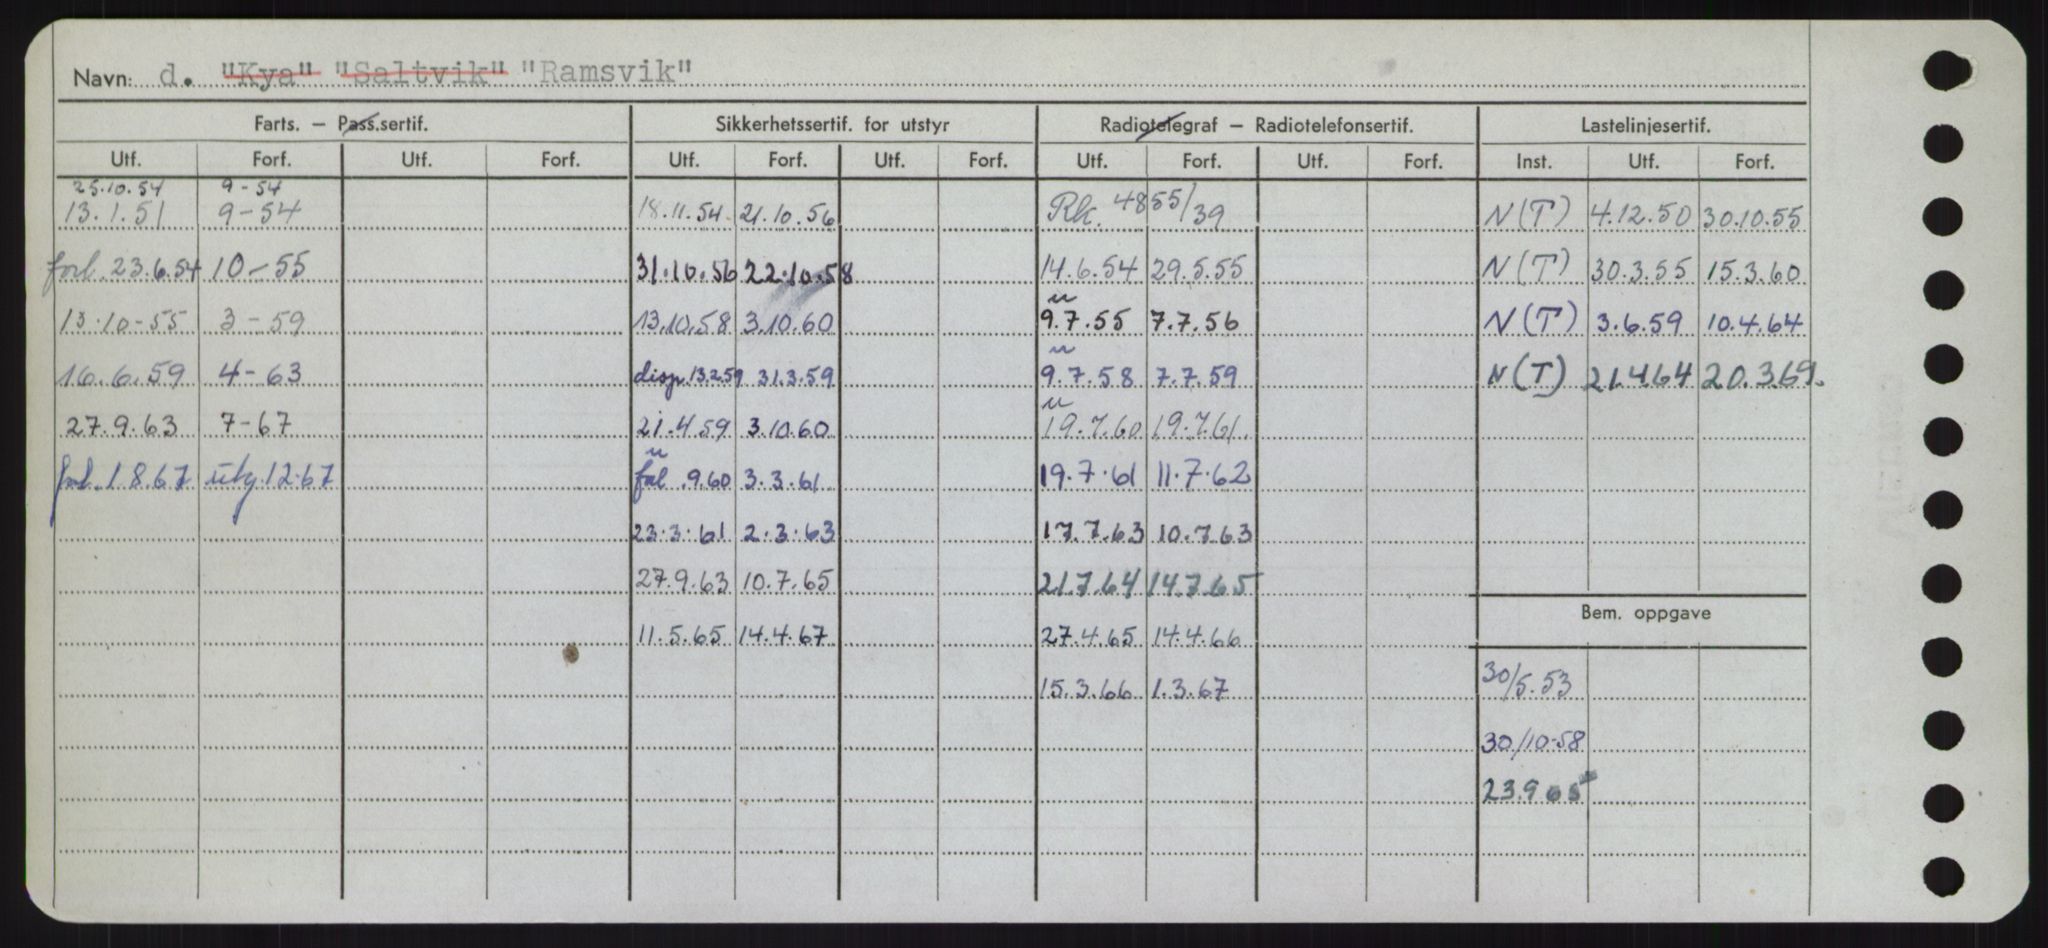 Navn: d. "Kya" "Saltvik" "Ramsvik"
Farts. – Pass.sertif. Sikkerhetssertif. for utstyr Radiotelegraf – Radiotelefonsertif. Lastelinjesertif.
Utf. Forf. Utf. Forf. Utf. Forf. Utf. Forf. Utf. Forf. Utf. Forf. Inst. Utf. Forf.
25.10.54 9-54
13.1.51 9-54 18.11.54 21.10.56 Rk. 4855/39 N(T) 4.12.50 30.10.55
forl. 23.6.54 10-55 31.10.56 22.10.58 14.6.54 29.5.55 N(T) 30.3.55 15.3.60
13.10-55 3-59 13.10.58 3.10.60 9.7.55 7.7.56 N(T) 3.6.59 10.4.64
16.6.59 4-63 disp. 13.2.59 31.3.59 9.7.58 7.7.59 N(T) 21.4.64 20.3.69.
27.9.63 7-67 21.4.59 3.10.60 19.7.60 19.7.61.
forl. 1.8.67 utg. 12.67 .9.60 3.3.61 19.7.61 11.7.62
23.3.61 2.3.63 17.7.63 10.7.63
27.9.63 10.7.65 21.7.64 14.7.65
Bem. oppgave
11.5.65 14.4.67 27.4.65 14.4.66
15.3.66 1.3.67 30/5.53
30/10-58
23.9.65